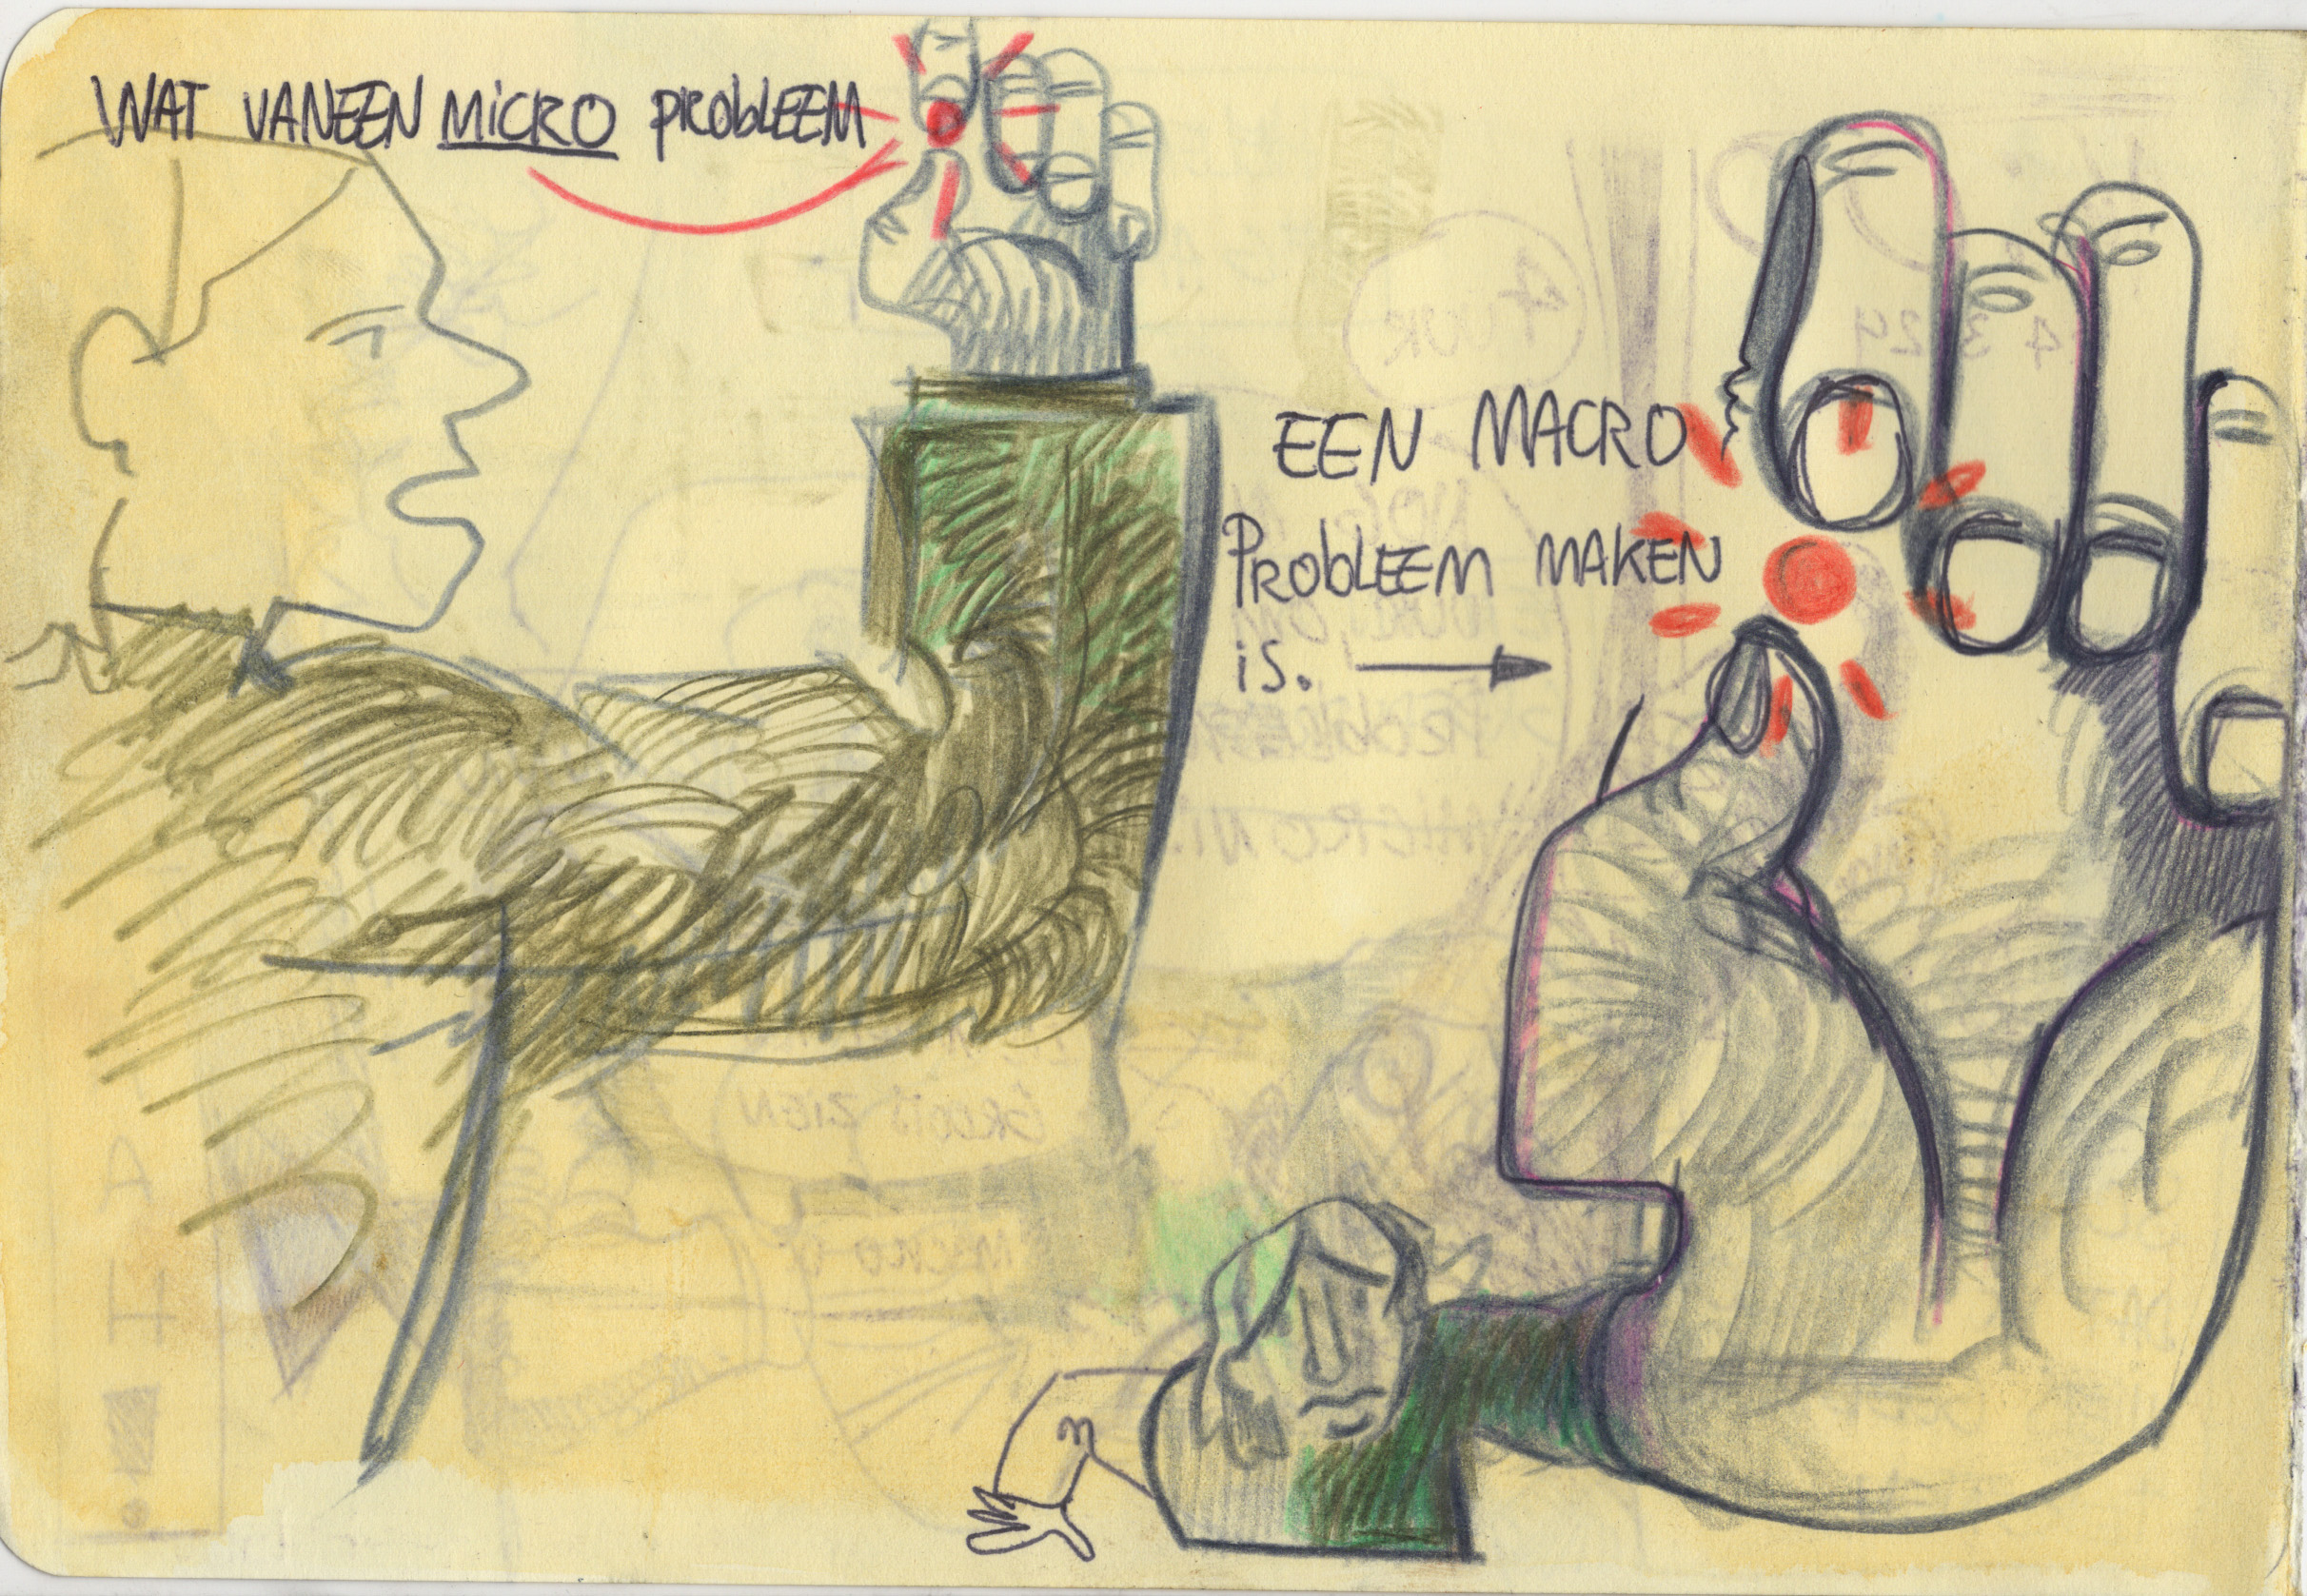 WAT VANEEN MICRO PROBLEEM
EEN MACRO
PROBLEEM MAKEN
iS.